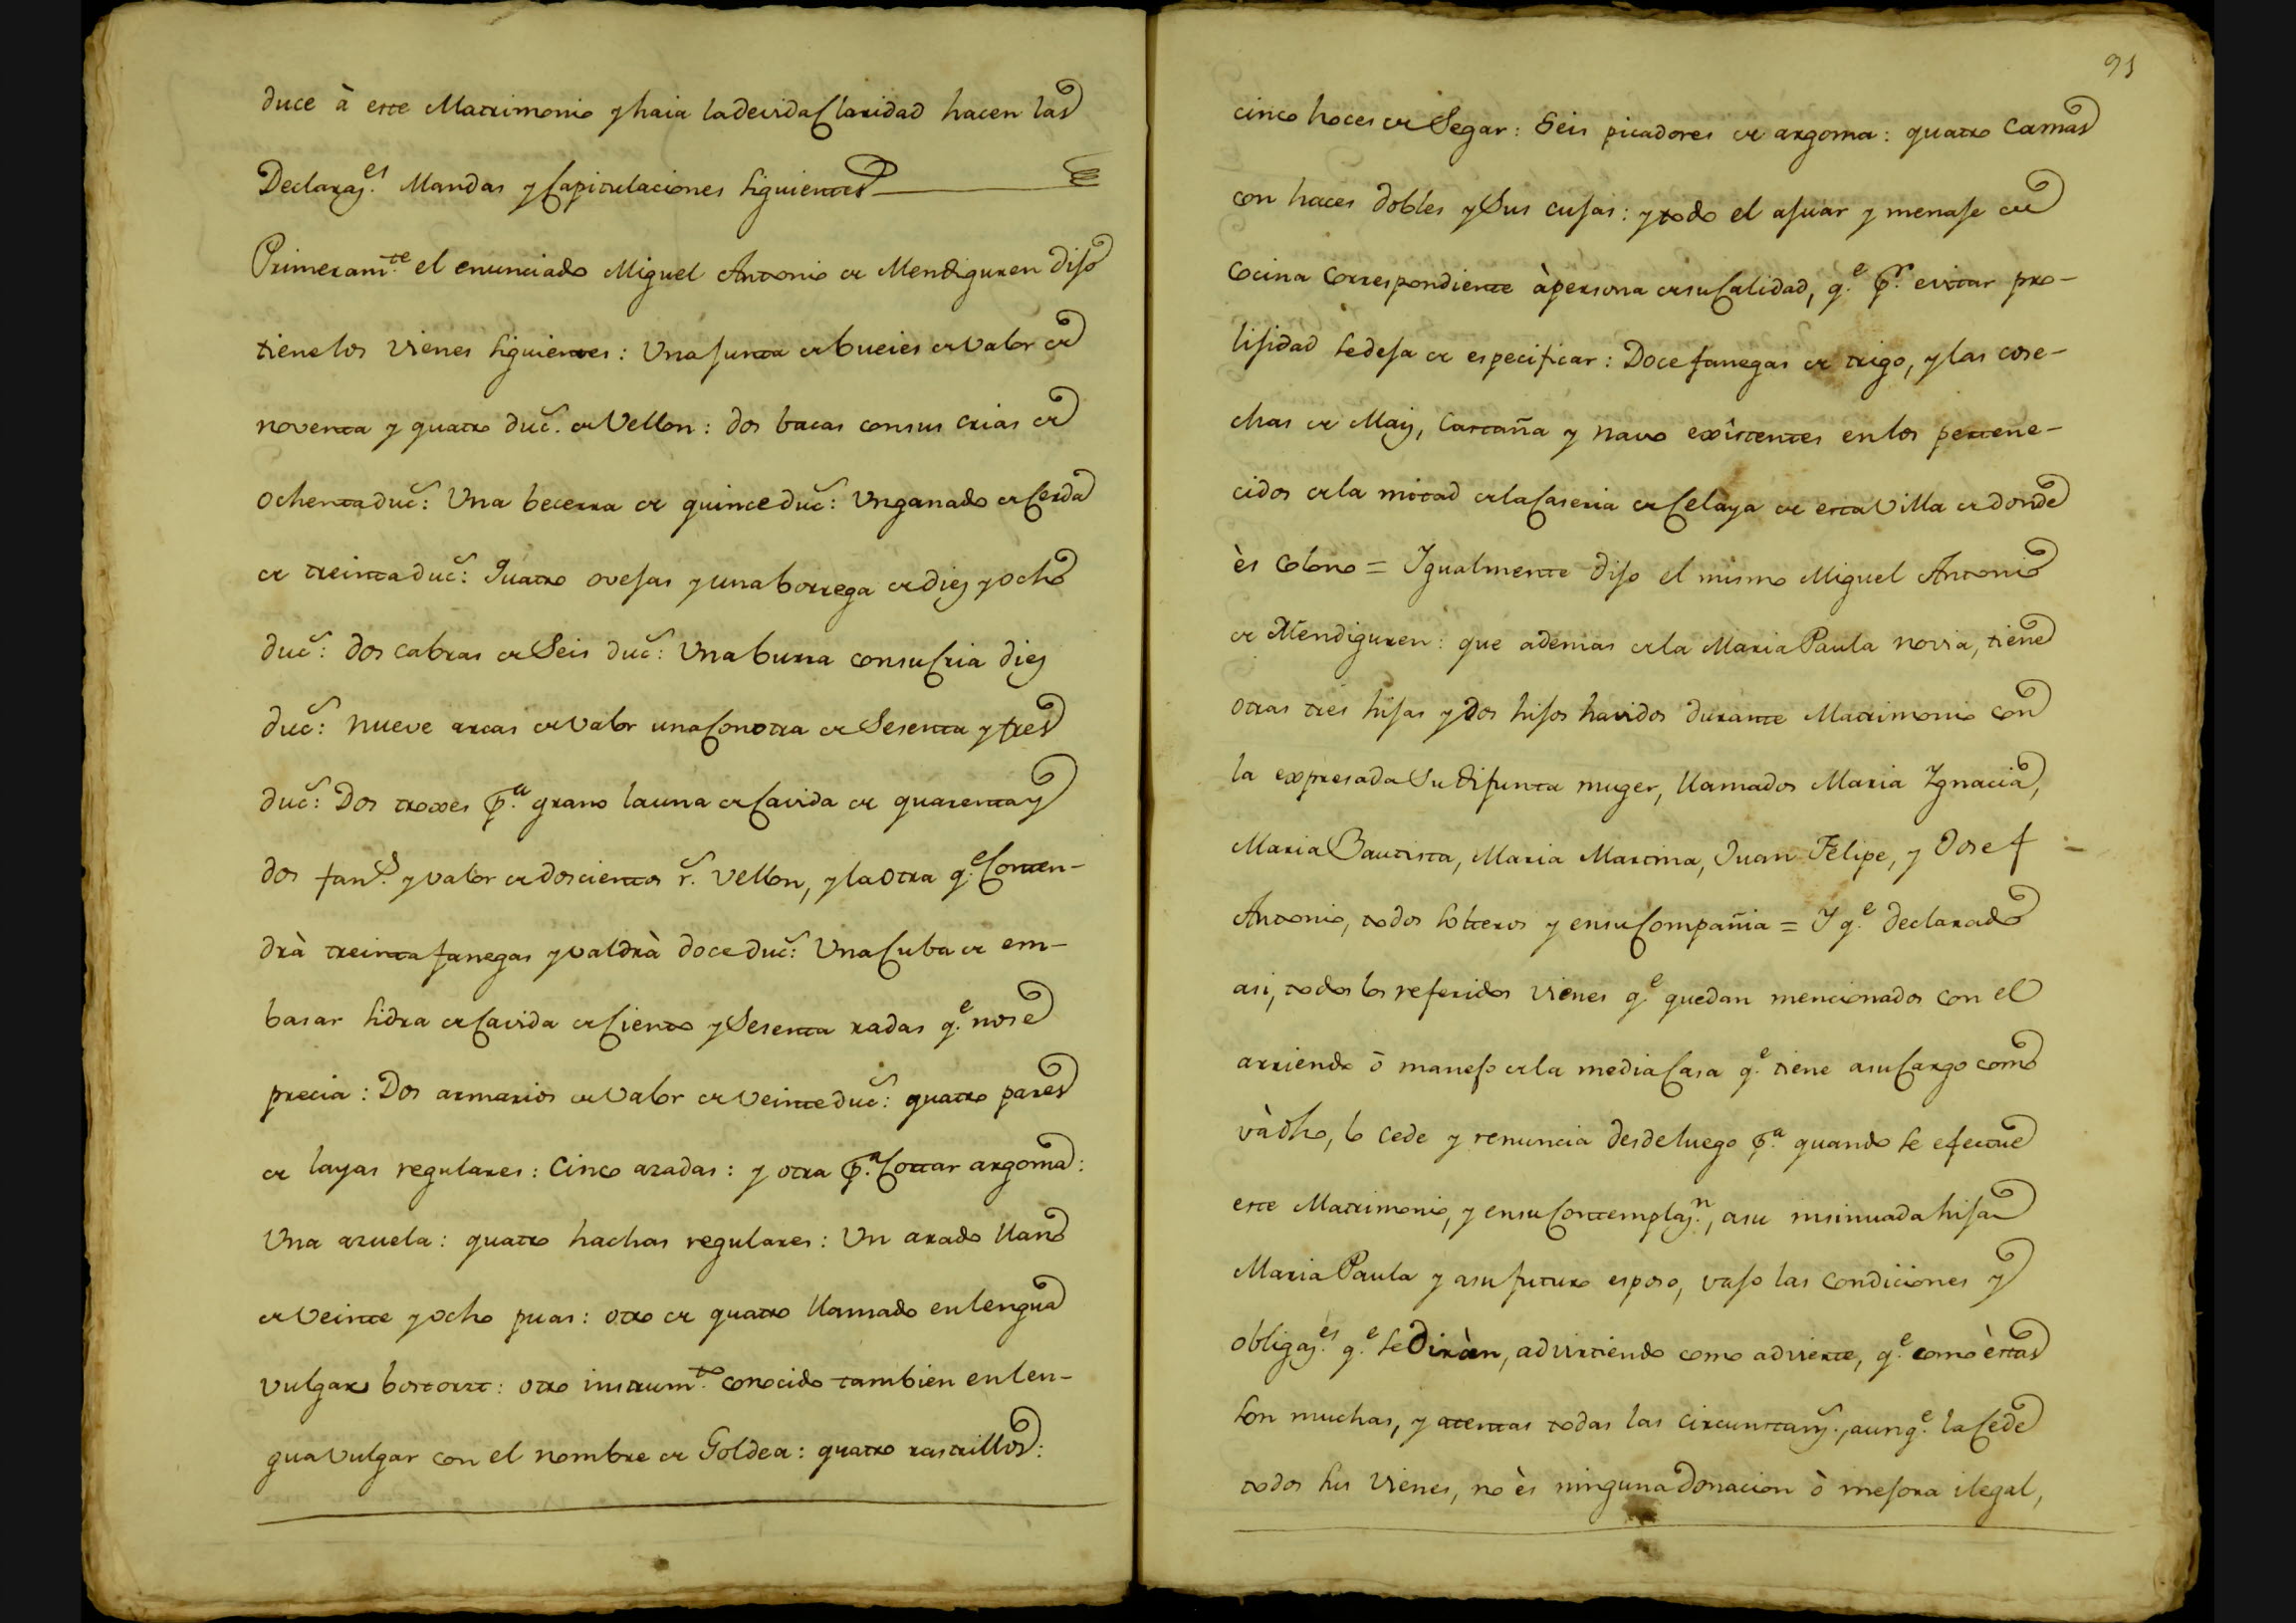 duce à este Matrimonio y haia la devida Claridad hacen las
Declaraz.es Mandas y Capitulaciones siguientes
Primeram.te el enunciado Miguel Antonio de Mendiguren dijo
tiene los vienes siguientes: Una junta de bueies de valor de
noventa y quatro duc.s de Vellon: dos bacas con sus crias de
ochenta duc.s: Una becerra de quince duc.s: Un ganado de Cerda
de treinta duc.s: Quatro ovejas y una borrega de diez y ocho
duc.s: dos cabras de Seis duc.s: Una burra con su Cria diez
duc.s: nueve arcas de valor una Con otra de Sesenta y tres
duc.s: Dos troxes p.a grano la una de Cavida de quarenta y
dos fan.s y valor de doscientos r.s Vellon, y la otra q.e Conten-
drà treinta fanegas y valdrà doce duc.s: Una Cuba de em-
basar sidra de Cavida de Ciento y Sesenta radas q.e no se
precia: Dos armarios de valor de Veinte duc.s: quatro pares
de layas regulares: Cinco azadas: y otra p.a Cortar argoma:
Una azuela: quatro hachas regulares: Un arado llano
de Veinte y ocho puas: otro de quatro llamado en lengua
vulgar bostortz: otro instrum.to conocido tambien en len-
gua vulgar con el nombre de Goldea: quatro rastrillos:
91
cinco hoces de Segar: Seis picadores de argoma: quatro Camas
con haces dobles y Sus cujas: y todo el ajuar y menaje de
Cocina Correspondiente à persona de su Calidad, q.e p.r evitar pro-
lijidad se deja de especificar: Doce fanegas de trigo, y las cose-
chas de Maiz, Castaña y navo existentes en los pertene-
cidos de la mitad de la Caseria de Celaya de esta Villa de donde
ès Colono = Igualmente dijo el mismo Miguel Antonio
de Mendiguren: que ademas de la Maria Paula novia, tiene
otras tres hijas y dos hijos havidos durante Matrimonio con
la expresada Su difunta muger, llamados Maria Ignacia,
Maria Bautista, Maria Martina, Juan Felipe, y Josef
Antonio, todos solteros y en su Compañia = Y q.e declarado
asi, todos los referidos vienes q.e quedan mencionados con el
arriendo ò manejo de la media Casa q.e tiene a su Cargo como
và dho, lo cede y renuncia desde luego p.a quando se efectue
este Matrimonio, y en su Contemplaz.n, a su insinuada hija
Maria Paula y a su futuro esposo, vajo las condiciones y
obligaz.es q.e se diràn, advirtiendo como advierte, q.e como èstas
son muchas, y atentas todas las circunstanz.s, aunq.e la Cede
todos sus vienes, no ès ninguna donacion ò mejora ilegal,